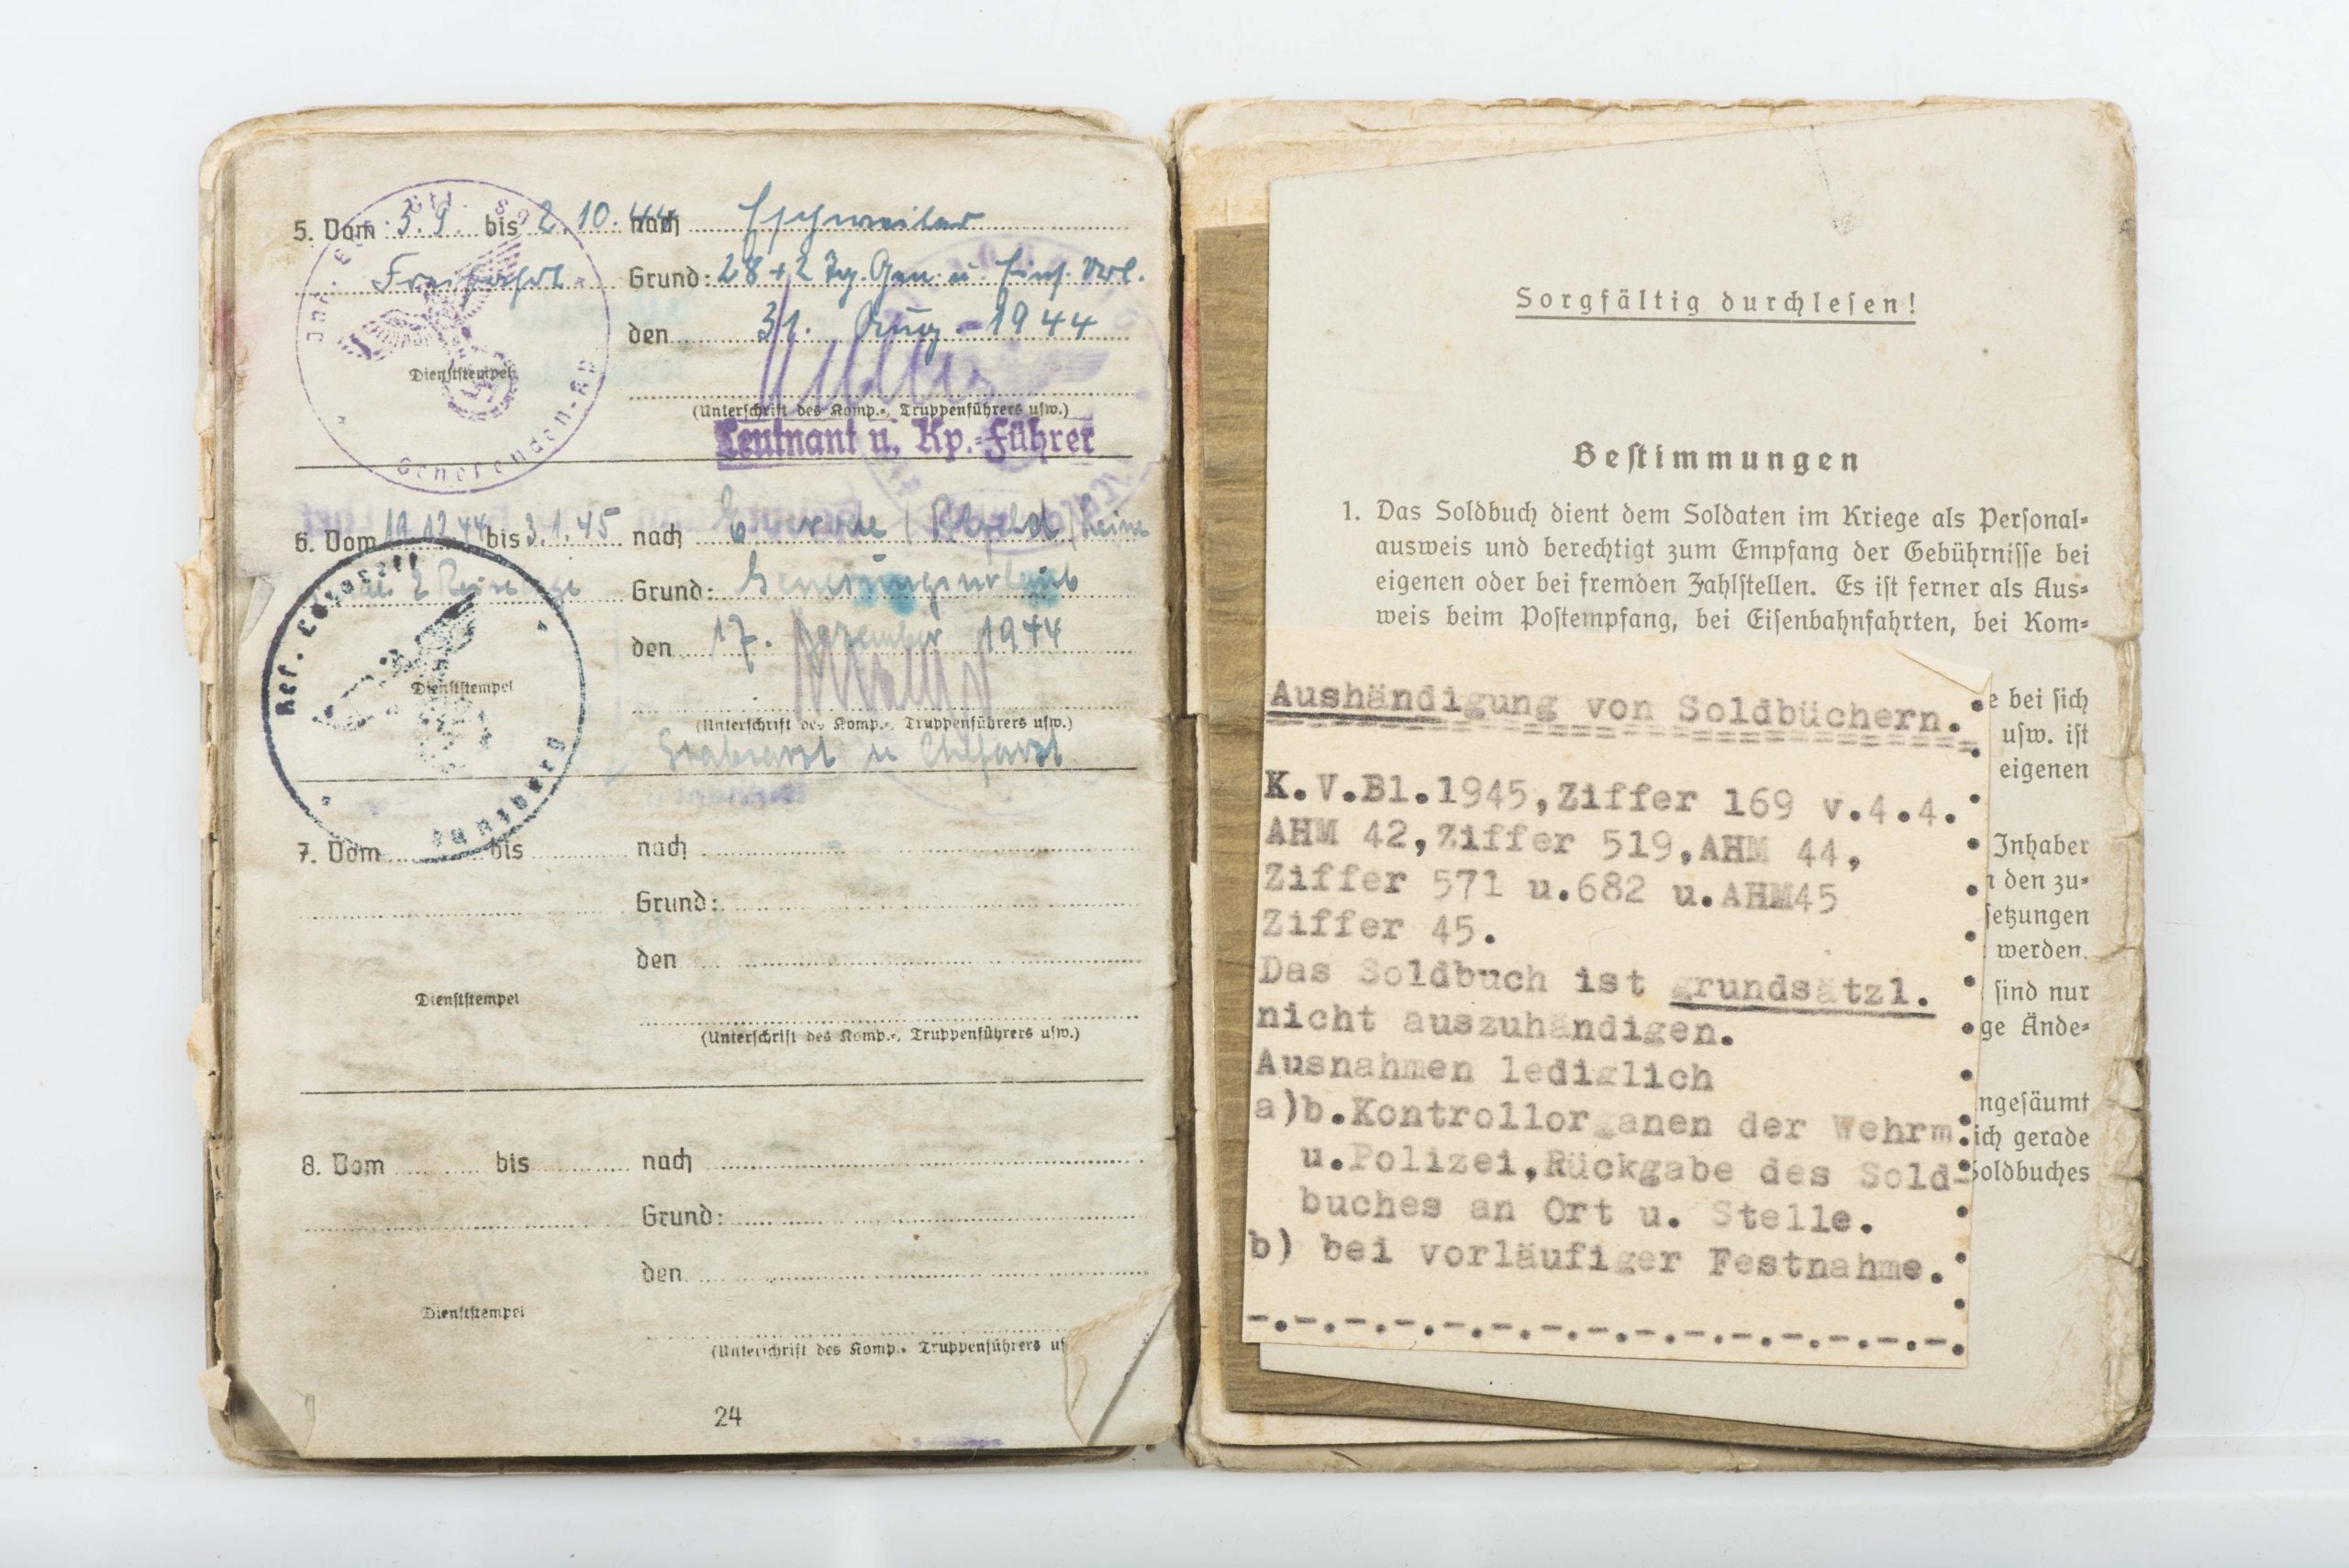 5. Vom 3.9. bis 2.10.44 nach Eschweiler
Grund: 28 + 2 Tg. Gen. u. Url.
den 31. Aug. 1944
Dienststempel
(Unterschrift des Komp.-, Truppenführers usw.)
Leutnant u. Kp.-Führer
Genesenden-Kp
6. Vom 19.12.44 bis 3.1.45 nach
2 Reisetage Grund: Genesungsurlaub
den 17. Dezember 1944
Res. Lazarett
Dienststempel
(Unterschrift des Komp.-, Truppenführers usw.)
Stabsarzt u Chefarzt
7. Vom bis nach
Grund:
den
Dienststempel
(Unterschrift des Komp.-, Truppenführers usw.)
8. Vom bis nach
Grund:
den
Dienststempel
(Unterschrift des Komp.- Truppenführers
24
Sorgfältig durchlesen!
Bestimmungen
1. Das Soldbuch dient dem Soldaten im Kriege als Personal-
ausweis und berechtigt zum Empfang der Gebührnisse bei
eigenen oder bei fremden Zahlstellen. Es ist ferner als Aus-
weis beim Postempfang, bei Eisenbahnfahrten, bei Kom-
e bei sich
usw. ist
eigenen
Inhaber
n den zu-
setzungen
werden.
sind nur
ge Ände-
ngesäumt
ich gerade
Soldbuches
Aushändigung von Soldbüchern.
K.V.Bl.1945,Ziffer 169 v.4.4.
AHM 42,Ziffer 519,AHM 44,
Ziffer 571 u.682 u.AHM45
Ziffer 45.
Das Soldbuch ist grundsätzl.
nicht auszuhändigen.
Ausnahmen lediglich
a)b.Kontrollorganen der Wehrm.
u.Polizei,Rückgabe des Sold-
buches an Ort u. Stelle.
b) bei vorläufiger Festnahme.